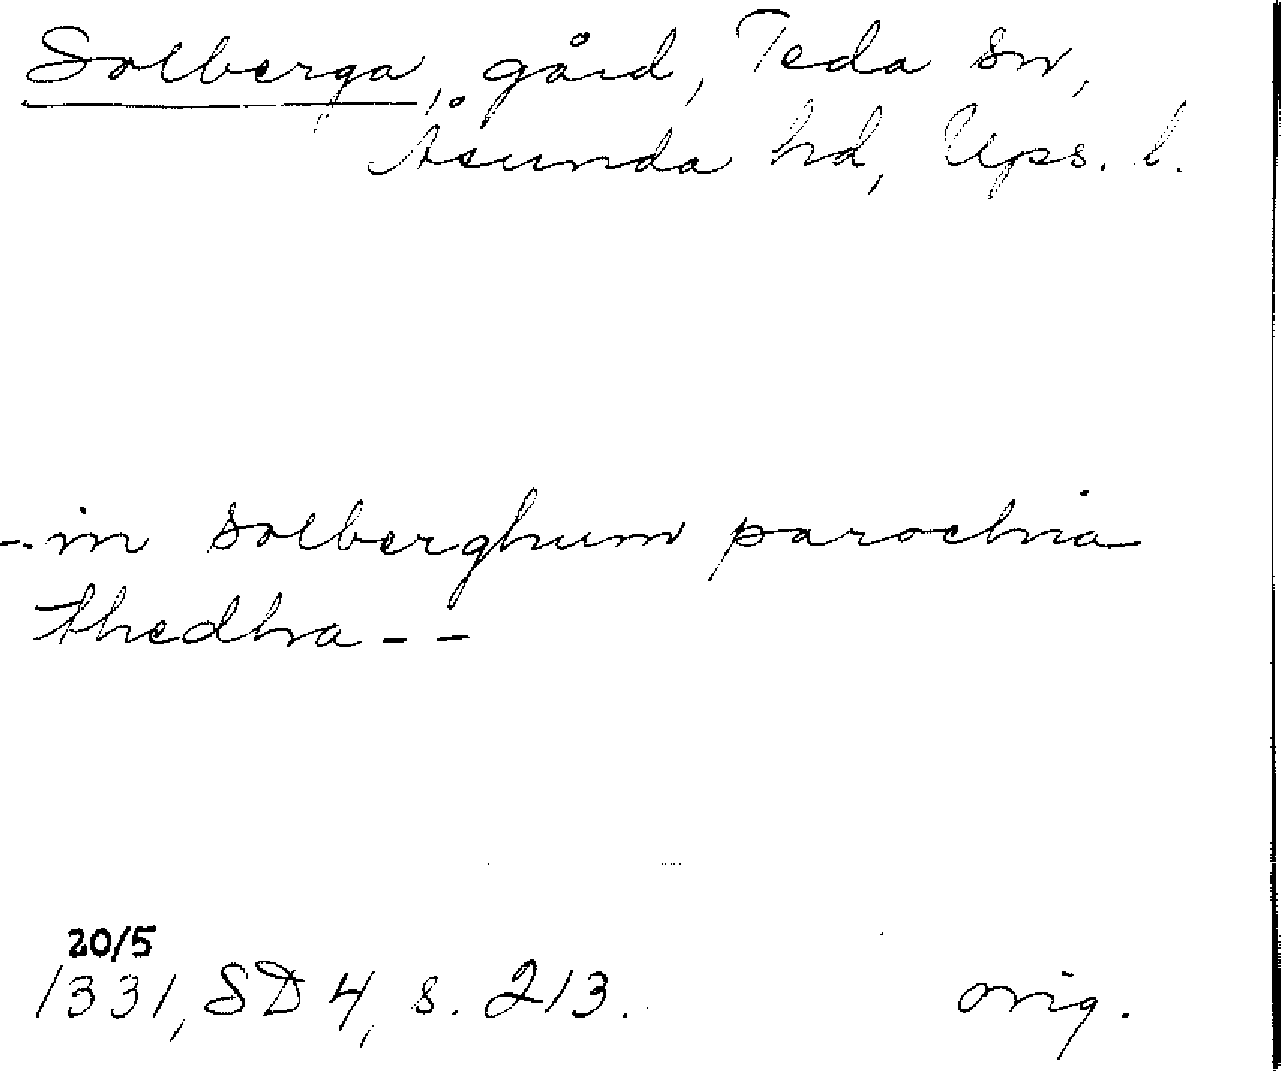 Solberga, gård, Teda sn,
Åsunda hd, Ups. l.
-. in solberghum parochia
thedhra - -
20/5
1331, SD 4, s. 213.
orig.